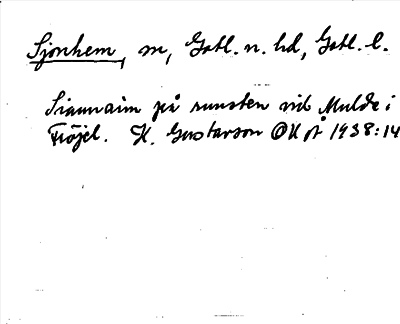 Sjonhem, sn, Gotl. n. hd, Gotl. l.
Siaunaim på runsten vid Mulde i
Fröjel. H. Gustavson OUÅ 1938:14